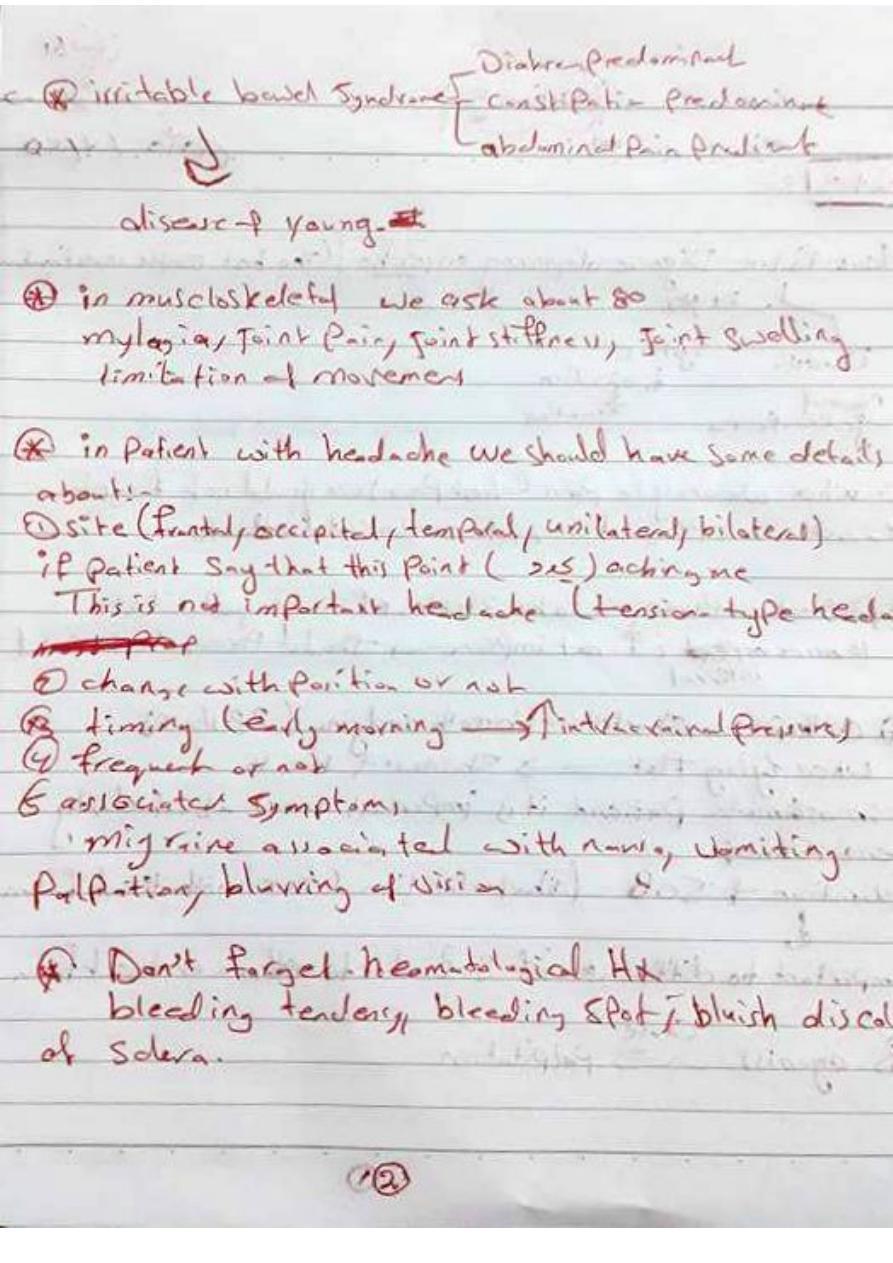 Diahren predominant
* irritable bowel Syndrome constipatin predominent
abdominal pain predient
disease of young
* in muscloskeletal we ask about 80
mylagia, Joint pain, joint stiffness, Joint swelling
limitation of movement
* in patient with headache we should have some details
about:-
① site (frontal, occipital, temporal, unilateral, bilateral)
if patient say that this point ( ) aching me
This is not important headache (tension-type heda
② change with position or not
③ timing (early morning → ↑ intracrainal pressures)
④ frequent or not
5 associated symptoms
migraine associated with nausia, vomiting
palpation, blurring of vision
* Don't forget heamatological Hx
bleeding tendency, bleeding spot, bluish discol
of Sclera.
②